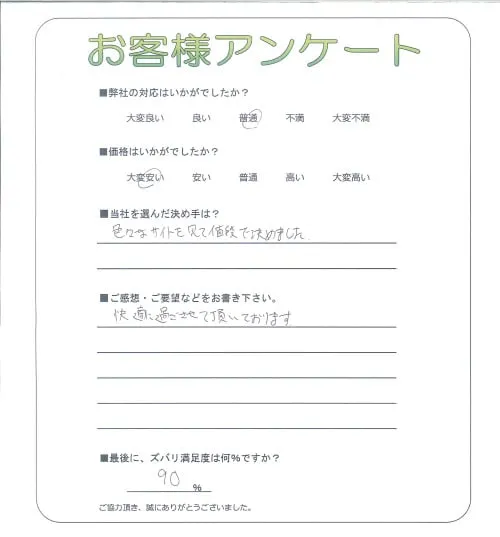 お客様アンケート
■弊社の対応はいかがでしたか？
大変良い 良い 普通 不満 大変不満
■価格はいかがでしたか？
大変安い 安い 普通 高い 大変高い
■当社を選んだ決め手は？
色々なサイトを見て値段で決めました
■ご感想・ご要望などをお書き下さい。
快適に過ごさせて頂いております
■最後に、ズバリ満足度は何%ですか？
90 %
ご協力頂き、誠にありがとうございました。